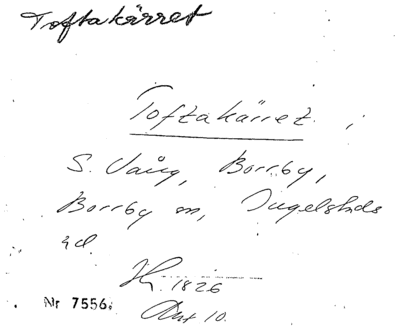 Toftakärret
Toftakärret.
S. Vång, Borrby,
Borrby sn, Ingelstads
hd
1826
Akt 10.
Nr 7556.